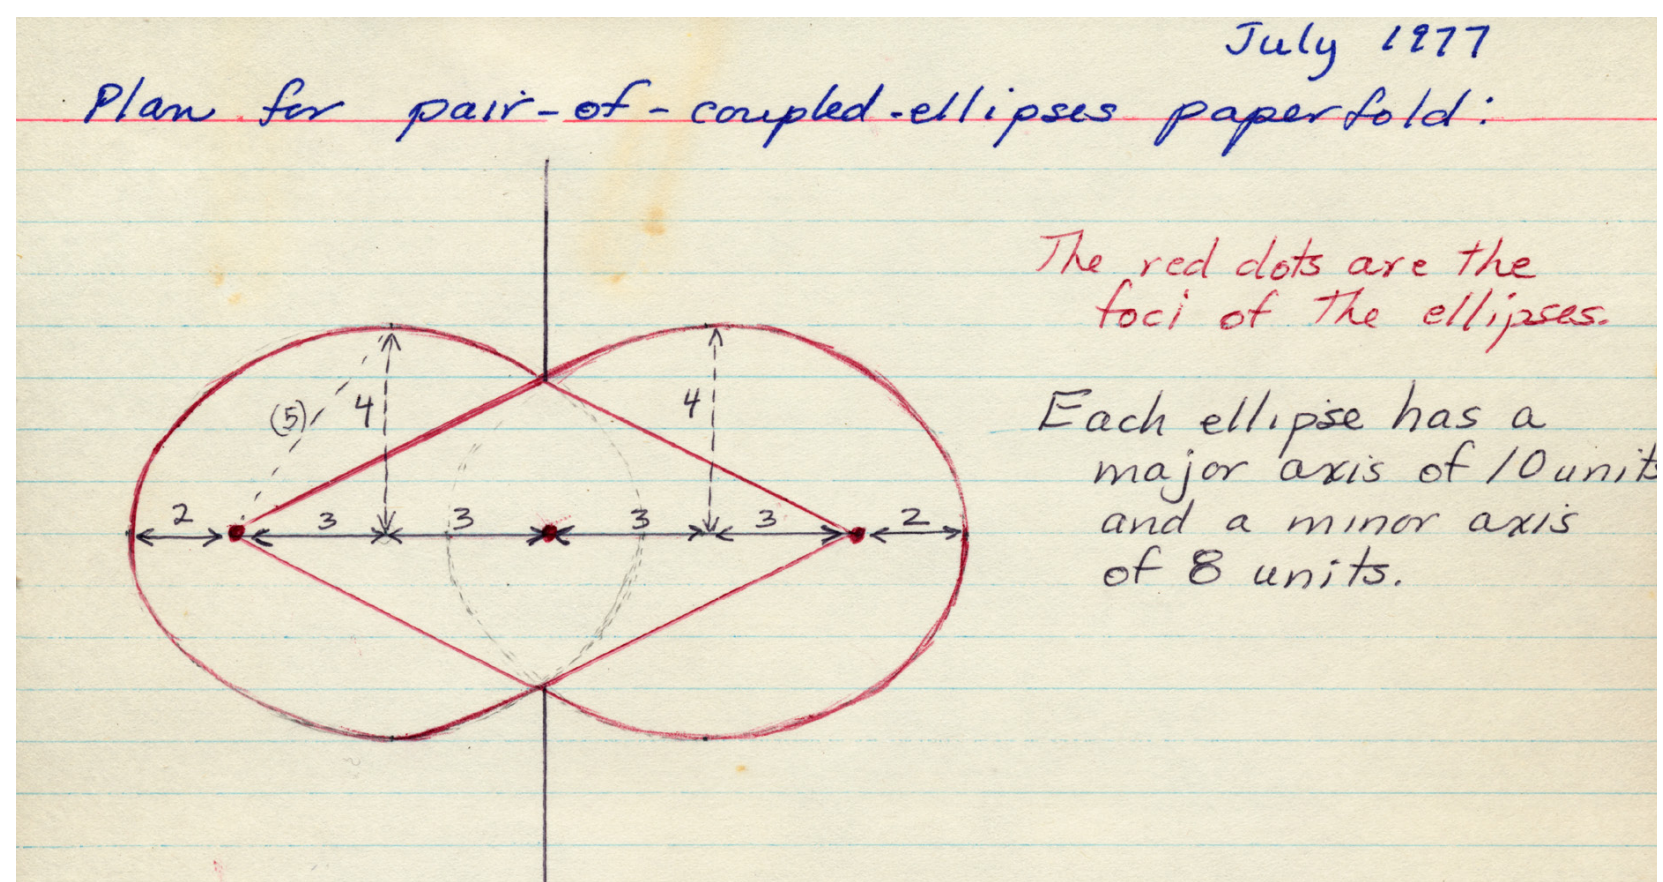 July 1977
Plan for pair-of-coupled-ellipses paperfold:
The red dots are the
foci of the ellipses.
(5) 4 4
Each ellipse has a
major axis of 10 units
and a minor axis
of 8 units.
2 3 3 3 3 2